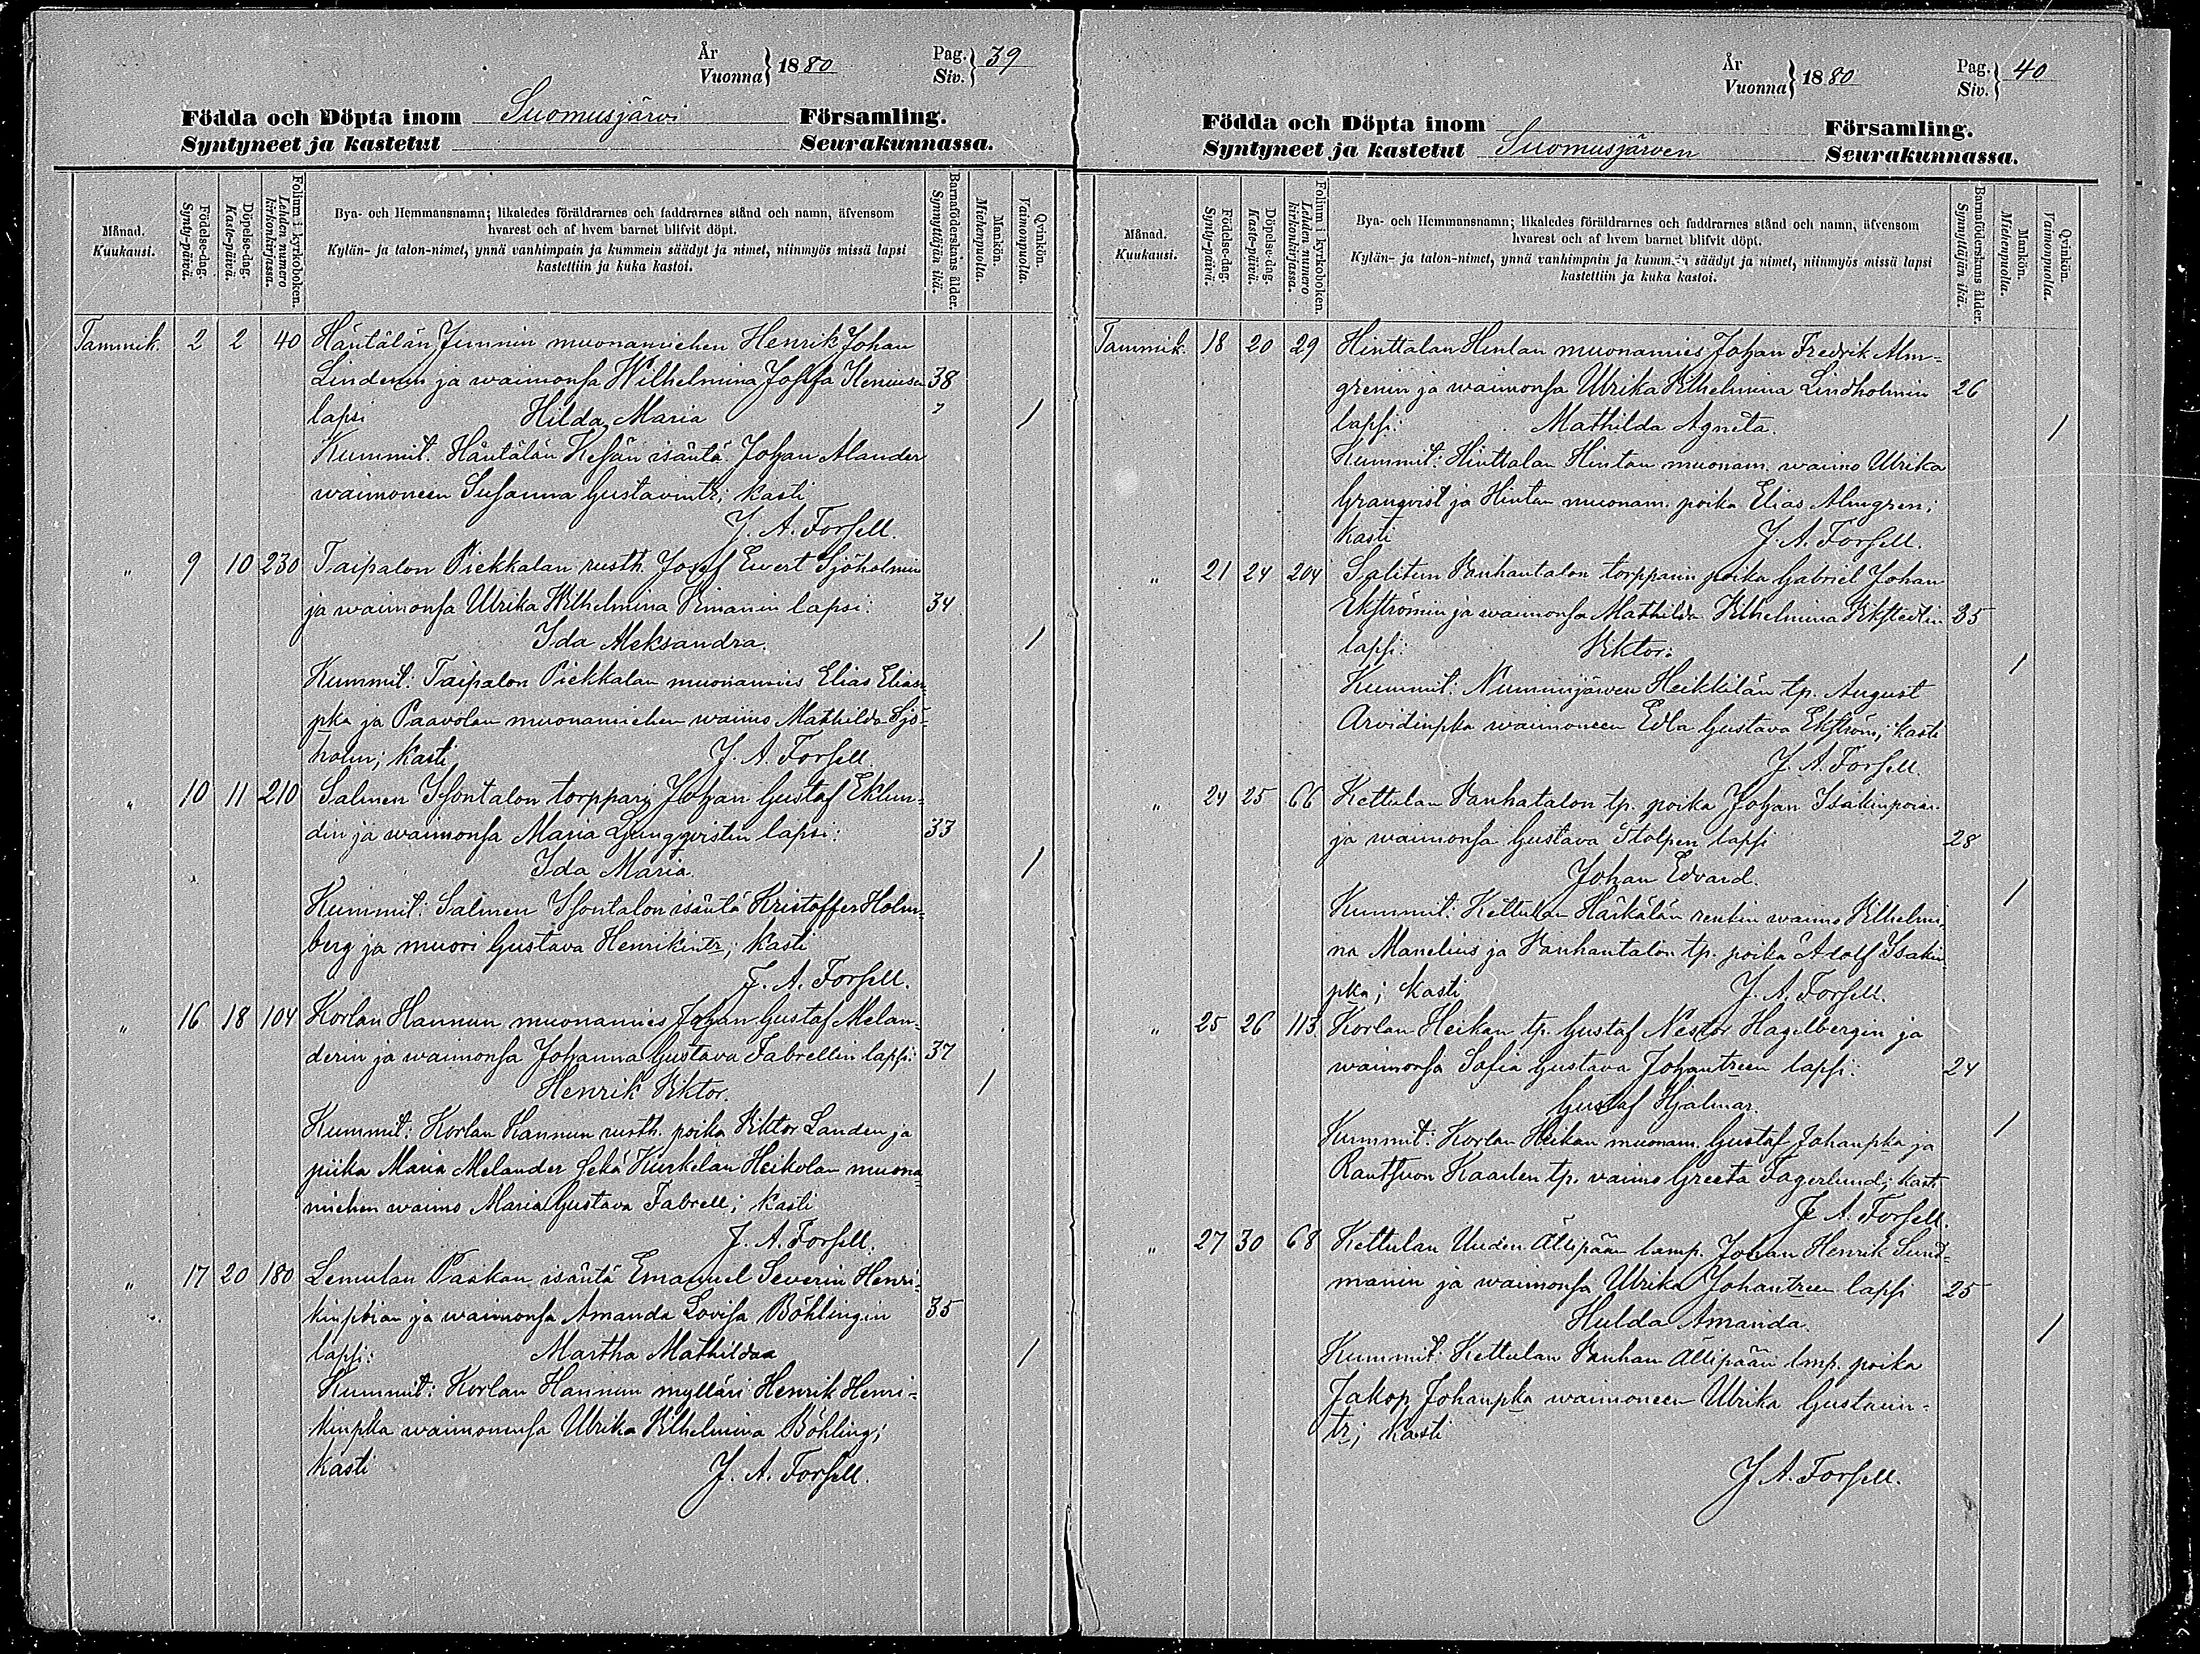 År
Vuonna } 1880
Pag.
Siv. } 39
Födda och Döpta inom Suomusjärvi Församling.
Syntyneet ja kastetut Seurakunnassa.
Månad.
Kuukausi.
Födelse-dag.
Synty-päivä.
Döpelse-dag.
Kaste-päivä.
Folium i kyrkoboken.
Lehden numero
kirkonkirjassa.
Bya- och Hemmansnamn; likaledes föräldrarnes och faddrarnes stånd och namn, äfvensom
hvarest och af hvem barnet blifvit döpt.
Kylän- ja talon-nimet, ynnä vanhimpain ja kummein säädyt ja nimet, niinmyös missä lapsi
kastettiin ja kuka kastoi.
Barnaföderskans ålder.
Synnyttäjän ikä.
Mankön.
Miehenpuolia.
Qvinkön.
Vaimonpuolia.
Tammik. 2 2 40 Häntälän Junnin muonamiehen Henrik Johan
Lindenin ja waimonsa Wilhelmina Josefa 38
lapsi Hilda Maria 1
Kummit. Häntälän Kesän isäntä Johan Alander
waimoneen Susanna Gustavintr; kasti
J. A. Forsell.
" 9 10 230 Taipalon Piekkalan rusth. Josef Evert Sjöholmin
ja waimonsa Ulrika Wilhelmina lapsi: 34
Ida Aleksandra. 1
Kummit: Taipalon Piekkalan muonamies Elias Elian
pka ja Paavolan muonamiehen waimo Mathilda Sjö-
holm; kasti J. A. Forsell.
" 10 11 210 Salmen Isontalon torppari Johan Gustaf Eklun-
din ja waimonsa Maria Ljungqvistin lapsi: 33
Ida Maria. 1
Kummit: Salmen Isontalon isäntä Kristoffer Holm-
berg ja muori Gustava Henrikintr; kasti
J. A. Forsell.
" 16 18 104 Korlan Hannun muonamies Johan Gustaf Melan-
derin ja waimonsa Johanna Gustava Fabrellin lapsi: 37
Henrik Viktor. 1
Kummit: Korlan Hannun rusth. poika Viktor Landen ja
piika Maria Melander sekä Kurkelan Heikolan muona-
miehen waimo Maria Gustava Fabrell; kasti
J. A. Forsell.
" 17 20 180 Lemulan Paskan isäntä Emanuel Severin Henri-
kinpoian ja waimonsa Amanda Lovisa Böhlingin 35
lapsi: Martha Mathilda 1
Kummit: Korlan Hannun mylläri Henrik Henri-
kinpka waimonensa Ulrika Vilhelmina Böhling;
kasti J. A. Forsell.
År
Vuonna } 1880
Pag.
Siv. } 40
Födda och Döpta inom Församling.
Syntyneet ja kastetut Suomusjärven Seurakunnassa.
Månad.
Kuukausi.
Födelse-dag.
Synty-päivä.
Döpelse-dag.
Kaste-päivä.
Folium i kyrkoboken.
Lehden numero
kirkonkirjassa.
Bya- och Hemmansnamn; likaledes föräldrarnes och faddrarnes stånd och namn, äfvensom
hvarest och af hvem barnet blifvit döpt.
Kylän- ja talon-nimet, ynnä vanhimpain ja kummein säädyt ja nimet, niinmyös missä lapsi
kastettiin ja kuka kastoi.
Barnaföderskans ålder.
Synnyttäjän ikä.
Mankön.
Miehenpuolia.
Qvinkön.
Vaimonpuolia.
Tammik. 18 20 29 Hinttalan Hintan muonamies Johan Fredrik Alm-
grenin ja waimonsa Ulrika Vilhelmina Lindholmin 26
lapsi: Mathilda Agneta. 1
Kummit: Hinttalan Hintan muonam. waimo Ulrika
Granqvist ja Hintan muonam. poika Elias Almgren;
kasti J. A. Forsell.
" 21 24 204 Salitun Vanhantalon torpparin poika Gabriel Johan
Ekströmin ja waimonsa Mathilda Vilhelmina 35
lapsi: Viktor: 1
Kummit: Nummijärven Heikkilän tp. August
Arvidinpka waimoneen Edla Gustava Ekström; kasti
J. A. Forsell.
" 24 25 66 Kettulan Vanhatalon tp. poika Johan Isakinpoian
ja waimonsa Gustava Stolpen lapsi 28
Johan Edvard. 1
Kummit: Kettulan Härkälän rentin waimo Vilhelmi-
na Manelius ja Vanhantalon tp. poika Adolf Isakin-
pka; kasti J. A. Forsell.
" 25 26 113 Korlan Heikan tp. Gustaf Nestor Hagelbergin ja
waimonsa Sofia Gustava Johantreen lapsi: 24
Gustaf Hjalmar. 1
Kummit: Korlan Heikan muonam. Gustaf Johanpka ja
Rantsuon Kaarlen tp. vaimo Greeta Fagerlund; kasti
J. A. Forsell.
" 27 30 68 Kettulan Uuden Ällipään lamp. Johan Henrik Sund-
manin ja waimonsa Ulrika Johantreen lapsi 25
Hulda Amanda. 1
Kummit: Kettulan Vanhan Ällipään lmp. poika
Jakop Johanpka waimoneen Ulrika Gustavin-
tr; kasti
J. A. Forsell.